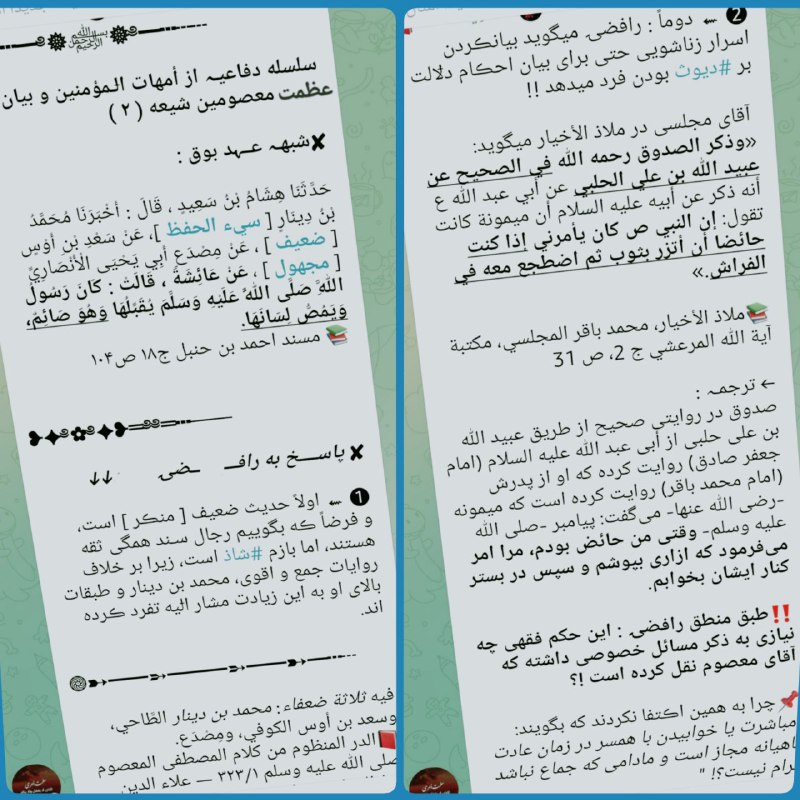 سلسله دفاعیـہ از أمهات الـمؤمنین و بیان
عظمت معصومین شیعه ( ۲ )
✘شبهـہ عـهد بوق :
حَدَّثَنَا هِشَامُ بْنُ سَعِيدٍ ، قَالَ : أَخْبَرَنَا مُحَمَّدُ
بْنُ دِينَارٍ [ سيء الحفظ ]، عَنْ سَعْدِ بْنِ أَوْسٍ
[ ضعيف ] ، عَنْ مِصْدَعٍ أَبِي يَحْيَى الْأَنْصَارِيِّ
[ مجهول ] ، عَنْ عَائِشَةَ ، قَالَتْ : كَانَ رَسُولُ
اللَّهِ صَلَّى اللَّهُ عَلَيْهِ وَسَلَّمَ يُقَبِّلُهَا وَهُوَ صَائِمٌ،
وَيَمُصُّ لِسَانَهَا.
📚 مسند احمد بن حنبل ج۱۸ ص۱۰۴
✘ پاســـخ به رافـــ ـــضی ↓↓
❶ اولاً حدیث ضعیف [ منکر ] است،
و فرضاً که بگوییم رجال سـند همگی ثقه
هستند، اما بازم #شاذ است، زیرا بر خلاف
روایات جمع و اقوی، محمد بن دینار و طبقات
بالای او به این زیادت مشار الیه تفرد کرده
اند.
فيه ثلاثة ضعفاء: محمد بن دينار الطّاحي،
وسعد بن أوس الكوفي، ومِصْدَع.
الدر المنظوم من كلام المصطفى المعصوم
صلى الله عليه وسلم ٣٢٣/١ — علاء الدين
❷ دوماً : رافضی میگوید بیانکردن
اسرار زناشویی حتی برای بیان احکام دلالت
بر #دیوث بودن فرد میدهد !!
آقای مجلسی در ملاذ الأخیار میگوید:
«وذكر الصدوق رحمه الله في الصحيح عن
عبيد الله بن علي الحلبي عن أبي عبد الله ع
أنه ذكر عن أبيه عليه السلام أن ميمونة كانت
تقول: إن النبي ص كان يأمرني إذا كنت
حائضا أن أتزر بثوب ثم اضطجع معه في
الفراش.»
📚ملاذ الأخيار، محمد باقر المجلسي، مكتبة
آية الله المرعشي ج 2، ص 31
← ترجمـہ :
صدوق در روایتی صحیح از طریق عبید الله
بن علی حلبی از أبی عبد الله علیه السلام (امام
جعفر صادق) روایت کرده که او از پدرش
(امام محمد باقر) روایت کرده است که میمونه
-رضی الله عنها- می‌گفت: پیامبر -صلی الله
علیه وسلم- وقتی من حائض بودم، مرا امر
می‌فرمود که ازاری بپوشم و سپس در بستر
کنار ایشان بخوابم.
‼️طبق منطق رافضی : این حکم فقهی چه
نیازی به ذکر مسائل خصوصی داشته که
آقای معصوم نقل کرده است !؟
📌 چرا به همین اکتفا نکردند که بگویند:
مباشرت یا خوابیدن با همسر در زمان عادت
ماهیانه مجاز است و مادامی که جماع نباشد
حرام نیست؟! "